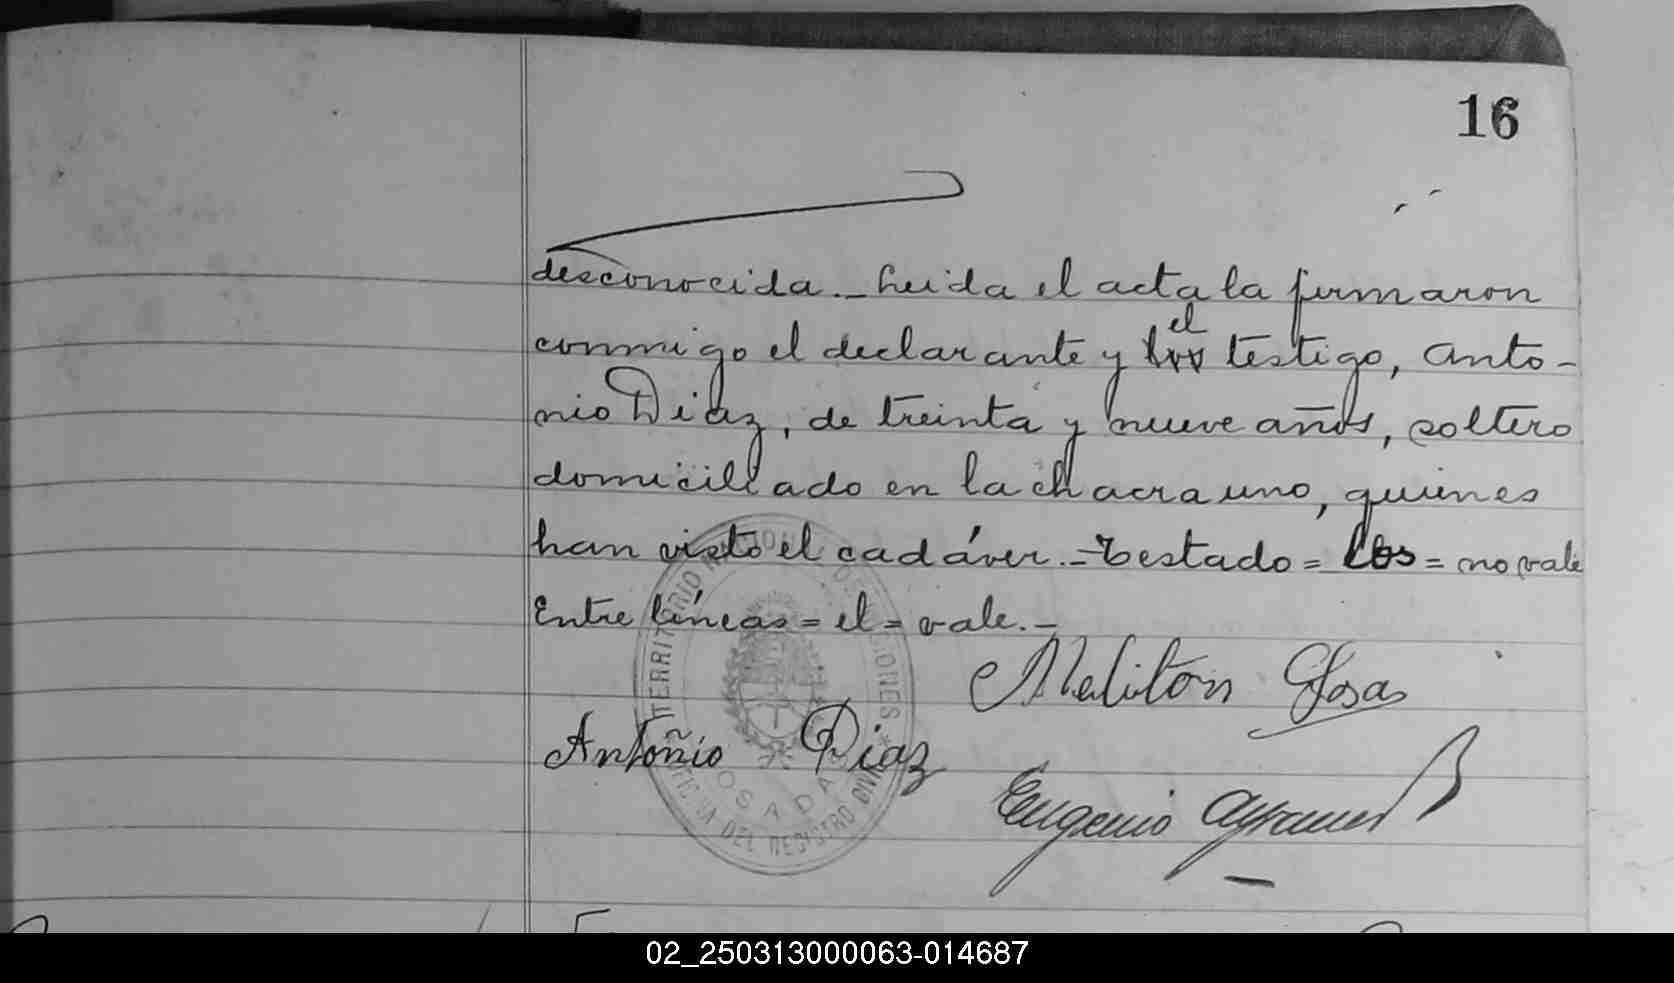 16
desconocida.- Leida el acta la firmaron
el
conmigo el declarante y los testigo, Anto-
nio Diaz, de treinta y nueve años, soltero
domiciliado en la chacra uno, quienes
han visto el cadáver.- Testado = los = no vale
Entre líneas = el = vale.-
Meliton
Antonio Diaz
Eugenio
TERRITORIO NACIONAL DE MISIONES
POSADAS
OFICINA DEL REGISTRO CIVIL
02_250313000063-014687